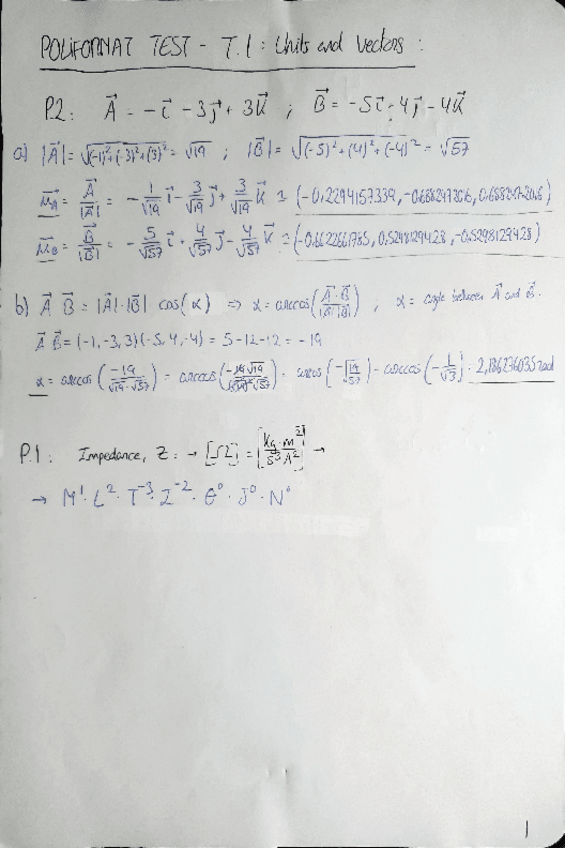 POLIFORMAT TEST - T.1: Units and vectors:
P.2: A⃗ = -i⃗ - 3j⃗ + 3k⃗ ; B⃗ = -5i⃗ + 4j⃗ - 4k⃗
a) |A⃗| = √((-1)²+(-3)²+(3)²) = √19 ; |B⃗| = √((-5)²+(4)²+(-4)²) = √57
μ⃗A = A⃗/|A⃗| = -1/√19 i⃗ - 3/√19 j⃗ + 3/√19 k⃗ = (-0,2294157339, -0.6882472016, 0.6882472016)
μ⃗B = B⃗/|B⃗| = -5/√57 i⃗ + 4/√57 j⃗ - 4/√57 k⃗ = (-0.6622661785, 0.5298129428, -0.5298129428)
b) A⃗ B⃗ = |A⃗|·|B⃗| cos(α) ⇒ α = arccos(A⃗·B⃗/|A⃗||B⃗|) , α = angle between A⃗ and B⃗.
A⃗ B⃗ = (-1,-3,3)(-5,4,-4) = 5-12-12 = -19
α = arccos(-19/√19·√57) = arccos(-19√19/(√19)²√57) = arccos(-√19/√57) = arccos(-1/√3) = 2,186276035 rad
P.1: Impedance, Z: → [Ω] = [Kg·m²/s³A²] →
→ M¹·L²·T⁻³·I⁻²·θ⁰·J⁰·N⁰
1